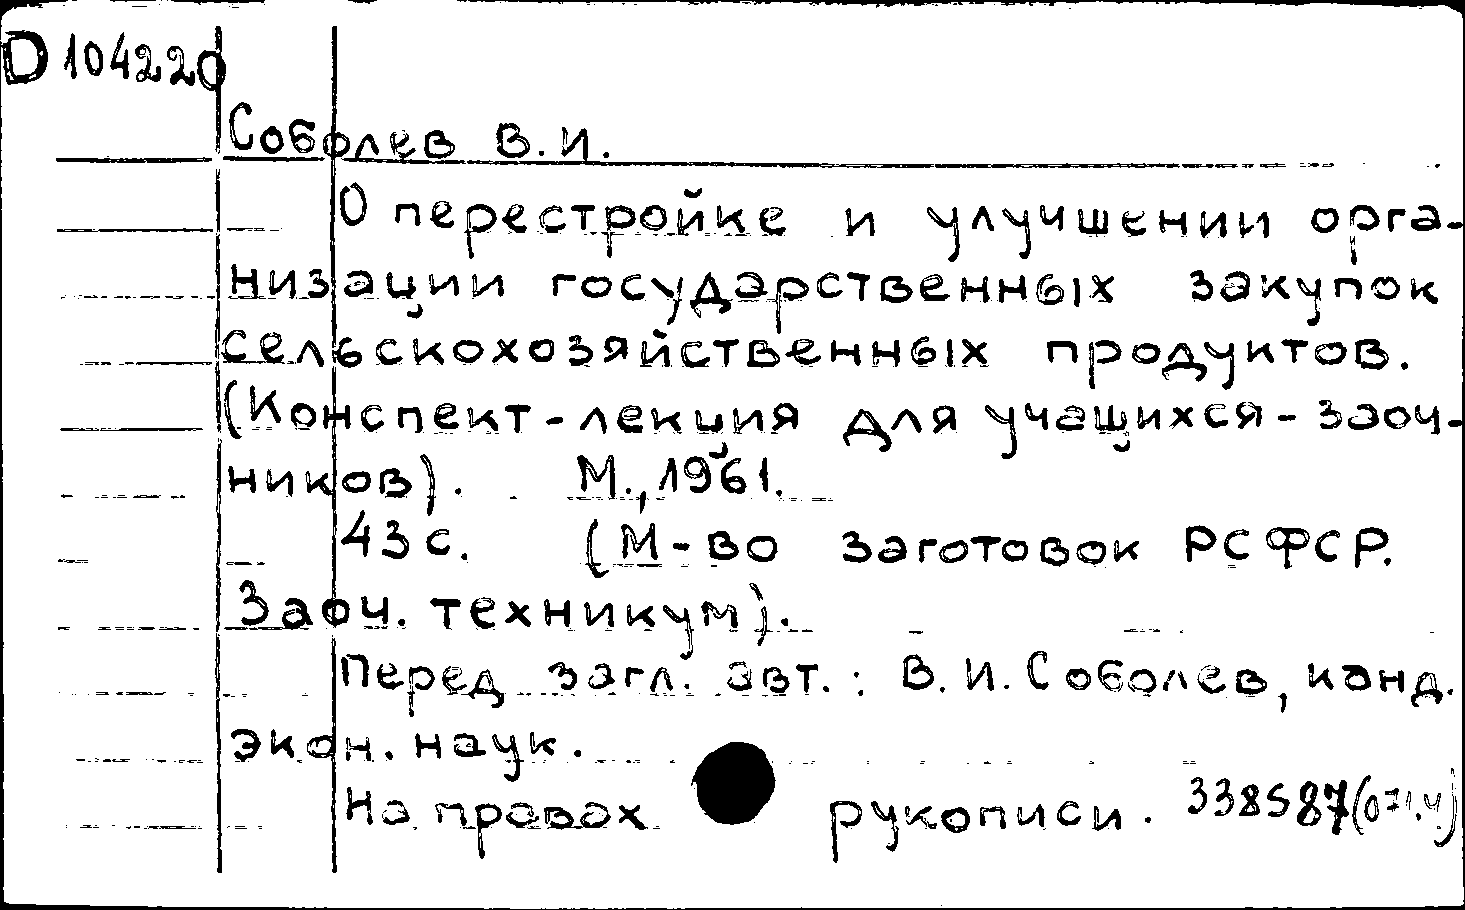 D 104220
Соболев В.И.
О перестройке и улучшении орга-
низации государственных закупок
сельскохозяйственных продуктов.
(Конспект-лекция для учащихся-заоч-
ников). М., 1961.
43 с. (М-во заготовок РСФСР.
Заоч. техникум).
Перед загл. авт.: В.И. Соболев, канд.
экон. наук.
На правах рукописи. 338S87(071.4)